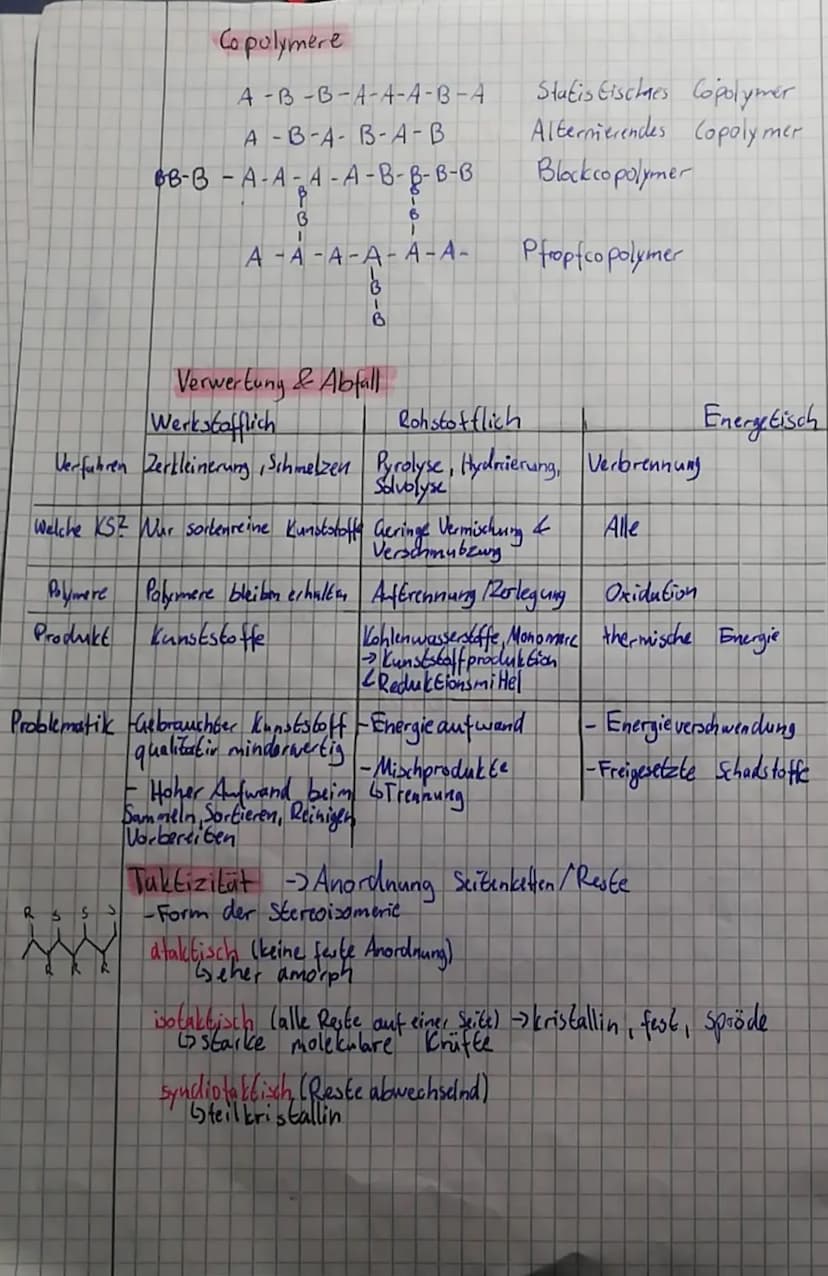 Copolymere
A-B-B-A-A-A-B-A Statistisches Copolymer
A-B-A-B-A-B Alternierendes Copolymer
BB-B-A-A-A-A-B-B-B-B Blockcopolymer
B B
B B
A-A-A-A-A-A- Pfropfcopolymer
B
B
Verwertung & Abfall
Werkstofflich Rohstofflich Energetisch
Verfahren Zerkleinerung, Schmelzen Pyrolyse, Hydrierung, Verbrennung
Solvolyse
Welche KS? Nur sortenreine Kunststoffe Geringe Vermischung & Alle
Verschmutzung
Polymere Polymere bleiben erhalten Auftrennung/Zerlegung Oxidation
Produkt Kunststoffe Kohlenwasserstoffe, Monomere thermische Energie
→ Kunststoffproduktion
& Reduktionsmittel
Problematik -Gebrauchter Kunststoff -Energieaufwand - Energieverschwendung
qualitativ minderwertig -Mischprodukte -Freigesetzte Schadstoffe
- Hoher Aufwand beim ↳Trennung
Sammeln, Sortieren, Reinigen
Vorbereiten
Taktizität → Anordnung Seitenketten/Reste
-Form der Stereoisomerie
R S S
R R R
ataktisch (keine feste Anordnung)
↳eher amorph
isotaktisch (alle Reste auf einer Seite) → kristallin, fest, spröde
↳starke molekulare Kräfte
syndiotaktisch (Reste abwechselnd)
↳teilkristallin